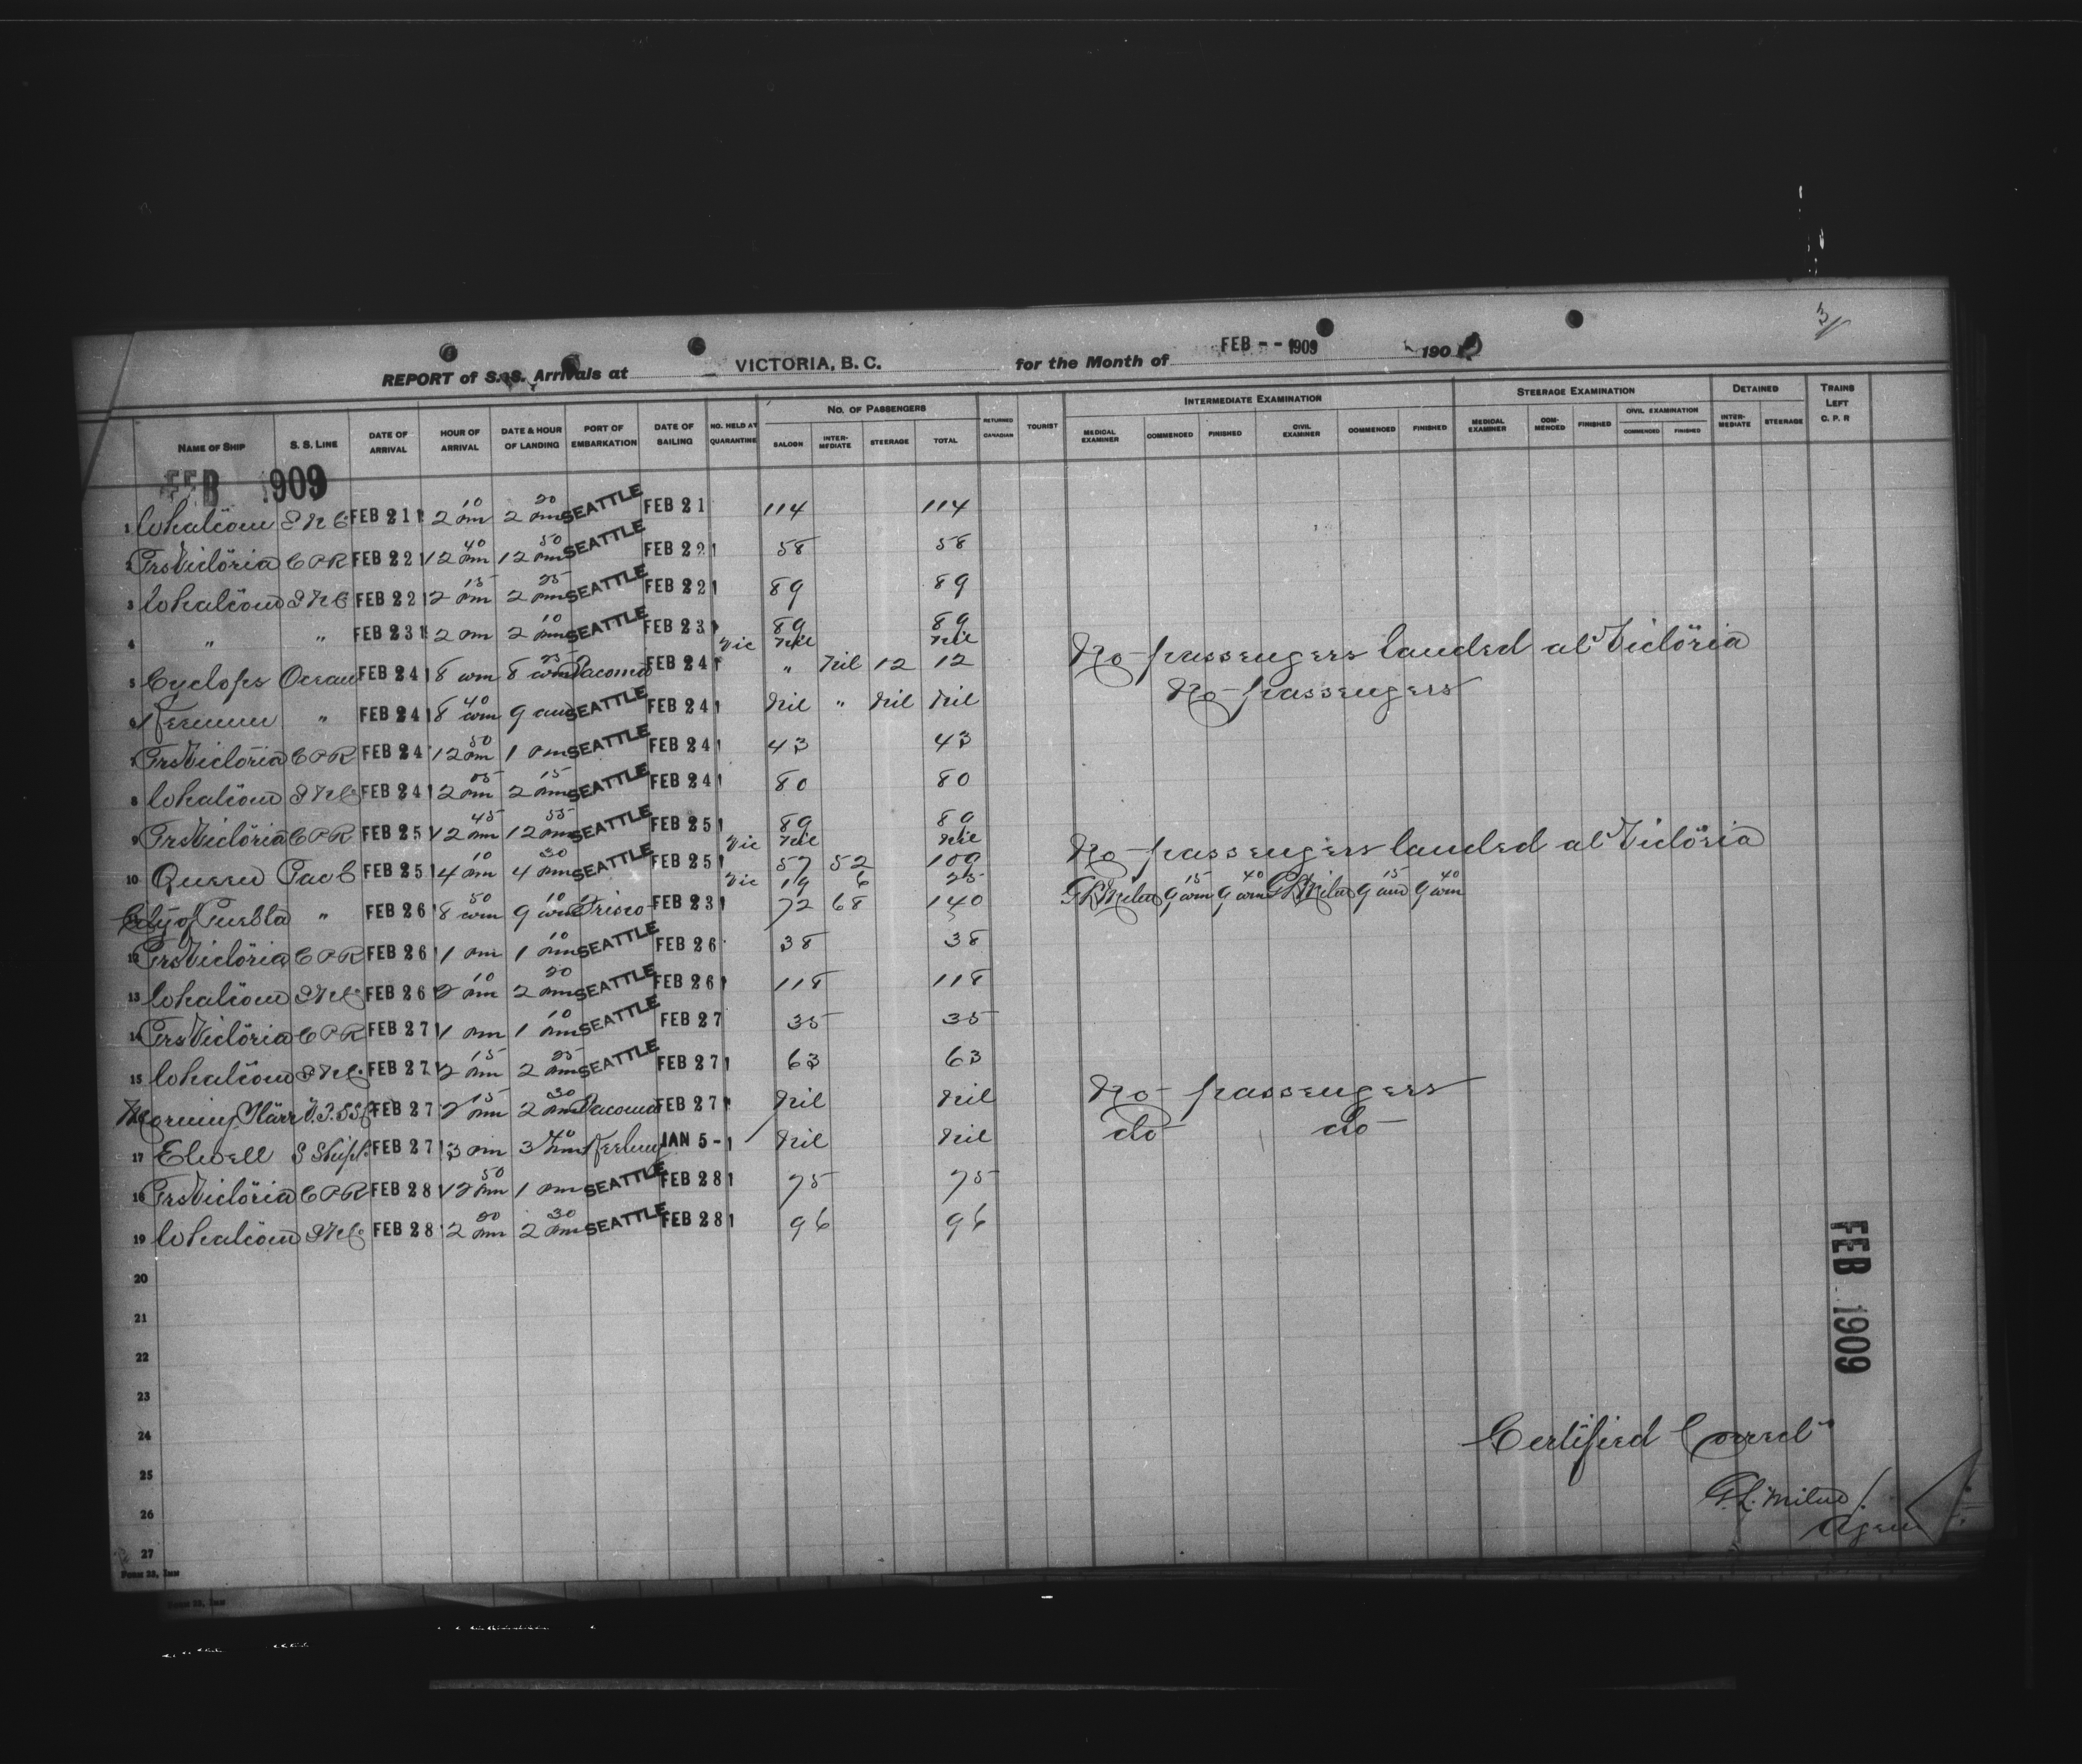 3/
REPORT of S.S. Arrivals at VICTORIA, B. C. for the Month of FEB -- 1909 190
NAME OF SHIP S. S. LINE DATE OF ARRIVAL HOUR OF ARRIVAL DATE & HOUR OF LANDING PORT OF EMBARKATION DATE OF SAILING NO. HELD AT QUARANTINE NO. OF PASSENGERS SALOON INTER-MEDIATE STEERAGE TOTAL RETURNED CANADIAN TOURIST INTERMEDIATE EXAMINATION MEDICAL EXAMINER COMMENCED FINISHED CIVIL EXAMINER COMMENCED FINISHED STEERAGE EXAMINATION MEDICAL EXAMINER COM-MENCED FINISHED CIVIL EXAMINATION COMMENCED FINISHED DETAINED INTER-MEDIATE STEERAGE TRAINS LEFT C. P. R
FEB 1909
1 Whatcom FEB 21 2 10 pm 2 20 pm SEATTLE FEB 21 114 114
2 Prs Victoria C P R FEB 22 12 40 pm 12 50 pm SEATTLE FEB 22 58 58
3 Whatcom FEB 22 2 15 pm 2 25 pm SEATTLE FEB 22 89 89
4 " " FEB 23 2 pm 2 10 pm SEATTLE FEB 23 89 89
Vic Nil Nil No passengers landed at Victoria
5 Cyclops Ocean FEB 24 8 am 8 25 am Tacoma FEB 24 " Nil 12 12
6 Keemun " FEB 24 8 40 am 9 am SEATTLE FEB 24 Nil " Nil Nil No passengers
7 Prs Victoria C P R FEB 24 12 50 pm 1 pm SEATTLE FEB 24 43 43
8 Whatcom FEB 24 2 05 pm 2 15 pm SEATTLE FEB 24 80 80
9 Prs Victoria C P R FEB 25 12 45 pm 12 55 pm SEATTLE FEB 25 89 89
Vic Nil Nil No passengers landed at Victoria
10 Queen Pac C FEB 25 4 10 pm 4 30 pm SEATTLE FEB 25 57 52 109
Vic 19 6 25 G L Milne 9 15 am 9 40 am G L Milne 9 15 am 9 40 am
City of Puebla " FEB 26 8 50 am 9 10 am Frisco FEB 23 72 68 140
12 Prs Victoria C P R FEB 26 1 pm 1 10 pm SEATTLE FEB 26 38 38
13 Whatcom FEB 26 2 10 pm 2 20 pm SEATTLE FEB 26 118 118
14 Prs Victoria C P R FEB 27 1 pm 1 10 pm SEATTLE FEB 27 35 35
15 Whatcom FEB 27 2 15 pm 2 25 pm SEATTLE FEB 27 63 63
FEB 27 2 15 pm 2 30 pm Tacoma FEB 27 Nil Nil No passengers
17 Elwell FEB 27 3 pm 3 JAN 5- Nil Nil do do
18 Prs Victoria C P R FEB 28 12 50 pm 1 pm SEATTLE FEB 28 75 75
19 Whatcom FEB 28 2 20 pm 2 30 pm SEATTLE FEB 28 96 96
20
21
22
23
24
25
26
27
FEB 1909
Certified Correct
G. L. Milne
Agent
FORM 33, IMM